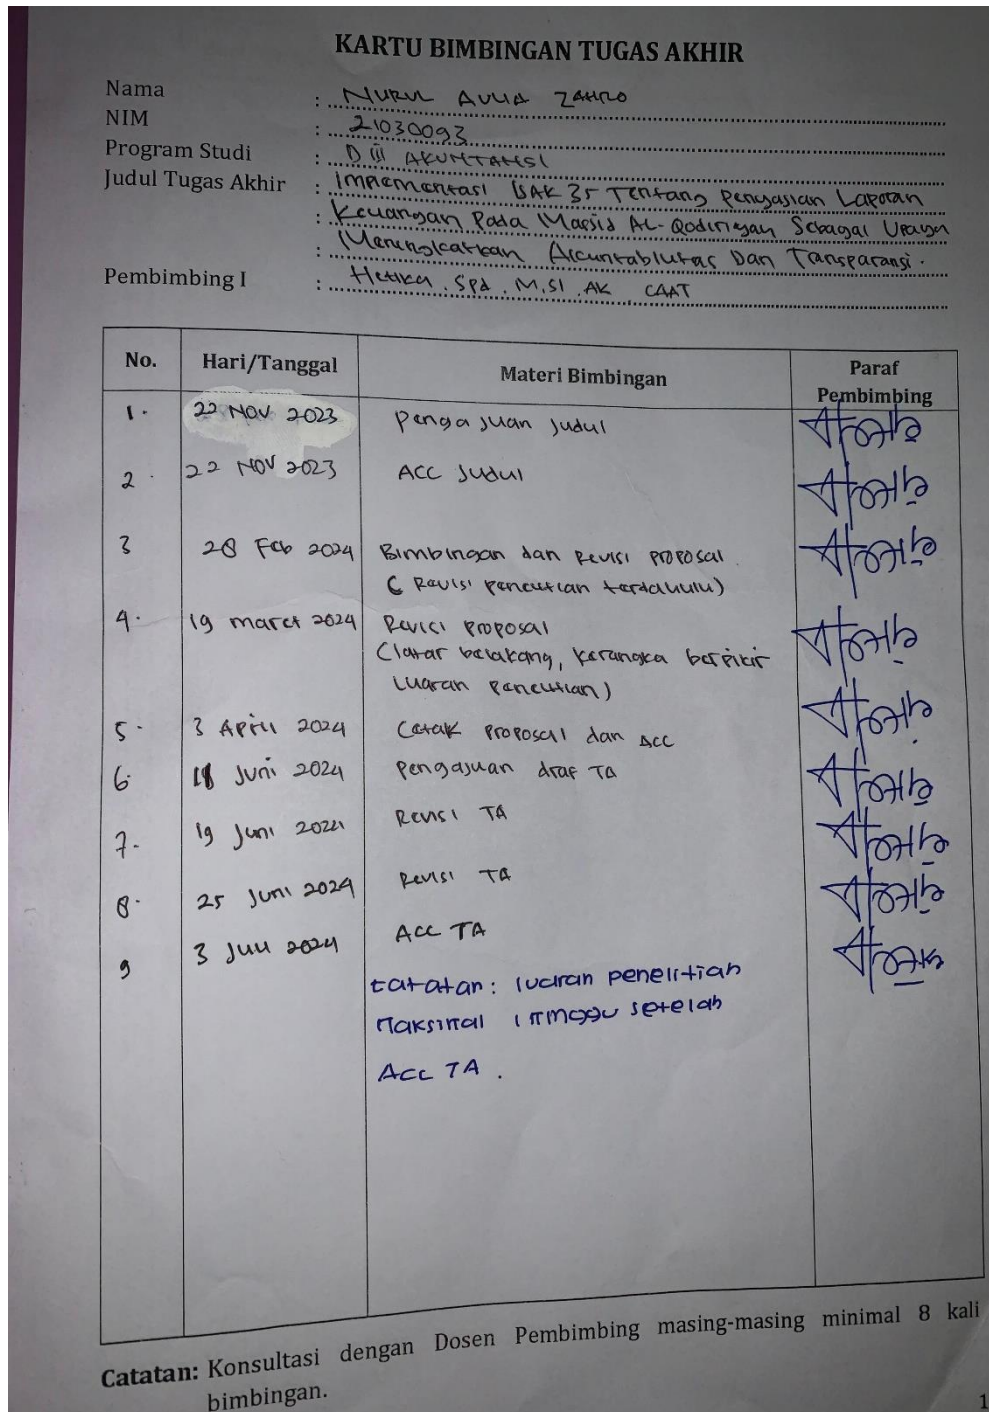 KARTU BIMBINGAN TUGAS AKHIR
Nama : NURUL AULIA ZAHRO
NIM : 21030093
Program Studi : D III AKUNTANSI
Judul Tugas Akhir : Implementasi ISAK 35 Tentang Penyajian Laporan
: Keuangan Pada Masjid AL-Qodiriyah Sebagai Upaya
: Meningkatkan Akuntabilitas Dan Transparansi.
Pembimbing I : Hetika. Spd. M.SI .AK CAAT
No. Hari/Tanggal Materi Bimbingan Paraf Pembimbing
1. 22 NOV 2023 Pengajuan Judul
2. 22 NOV 2023 ACC Judul
3 28 Feb 2024 Bimbingan dan Revisi Proposal.
( Revisi Penelitian terdahulu)
4. 19 maret 2024 Revisi Proposal
(latar belakang, kerangka berpikir
luaran penelitian)
5. 3 April 2024 Cetak Proposal dan ACC
6. 18 Juni 2024 Pengajuan draf TA
7. 19 Juni 2024 Revisi TA
8. 25 Juni 2024 Revisi TA
9 3 Juli 2024 ACC TA
Catatan: luaran penelitian
Maksimal 1 minggu setelah
Acc TA .
Catatan: Konsultasi dengan Dosen Pembimbing masing-masing minimal 8 kali
bimbingan.
1